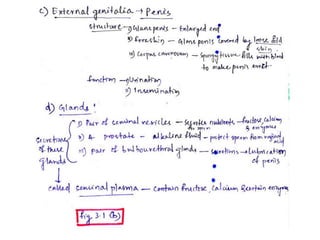 c) External genitalia → Penis
structure → i) Glans penis - Enlarged end
ii) Foreskin - Glans penis covered by loose fold
skin.
iii) Corpus cavernosum - Spongy tissue fills with blood
to make penis erect
function - i) Urination
ii) Insemination
d) Glands :
i) Pair of seminal vesicles - Secretes nutrients - fructose, Calcium
& enzymes
ii) A prostate - alkaline fluid - protect sperm from vaginal
acid
iii) pair of bulbourethral glands - secretions - lubrication
of penis
Secretions
of these
glands
called seminal plasma - Contain fructose, Calcium & certain enzyme
fig 3.1 (b)